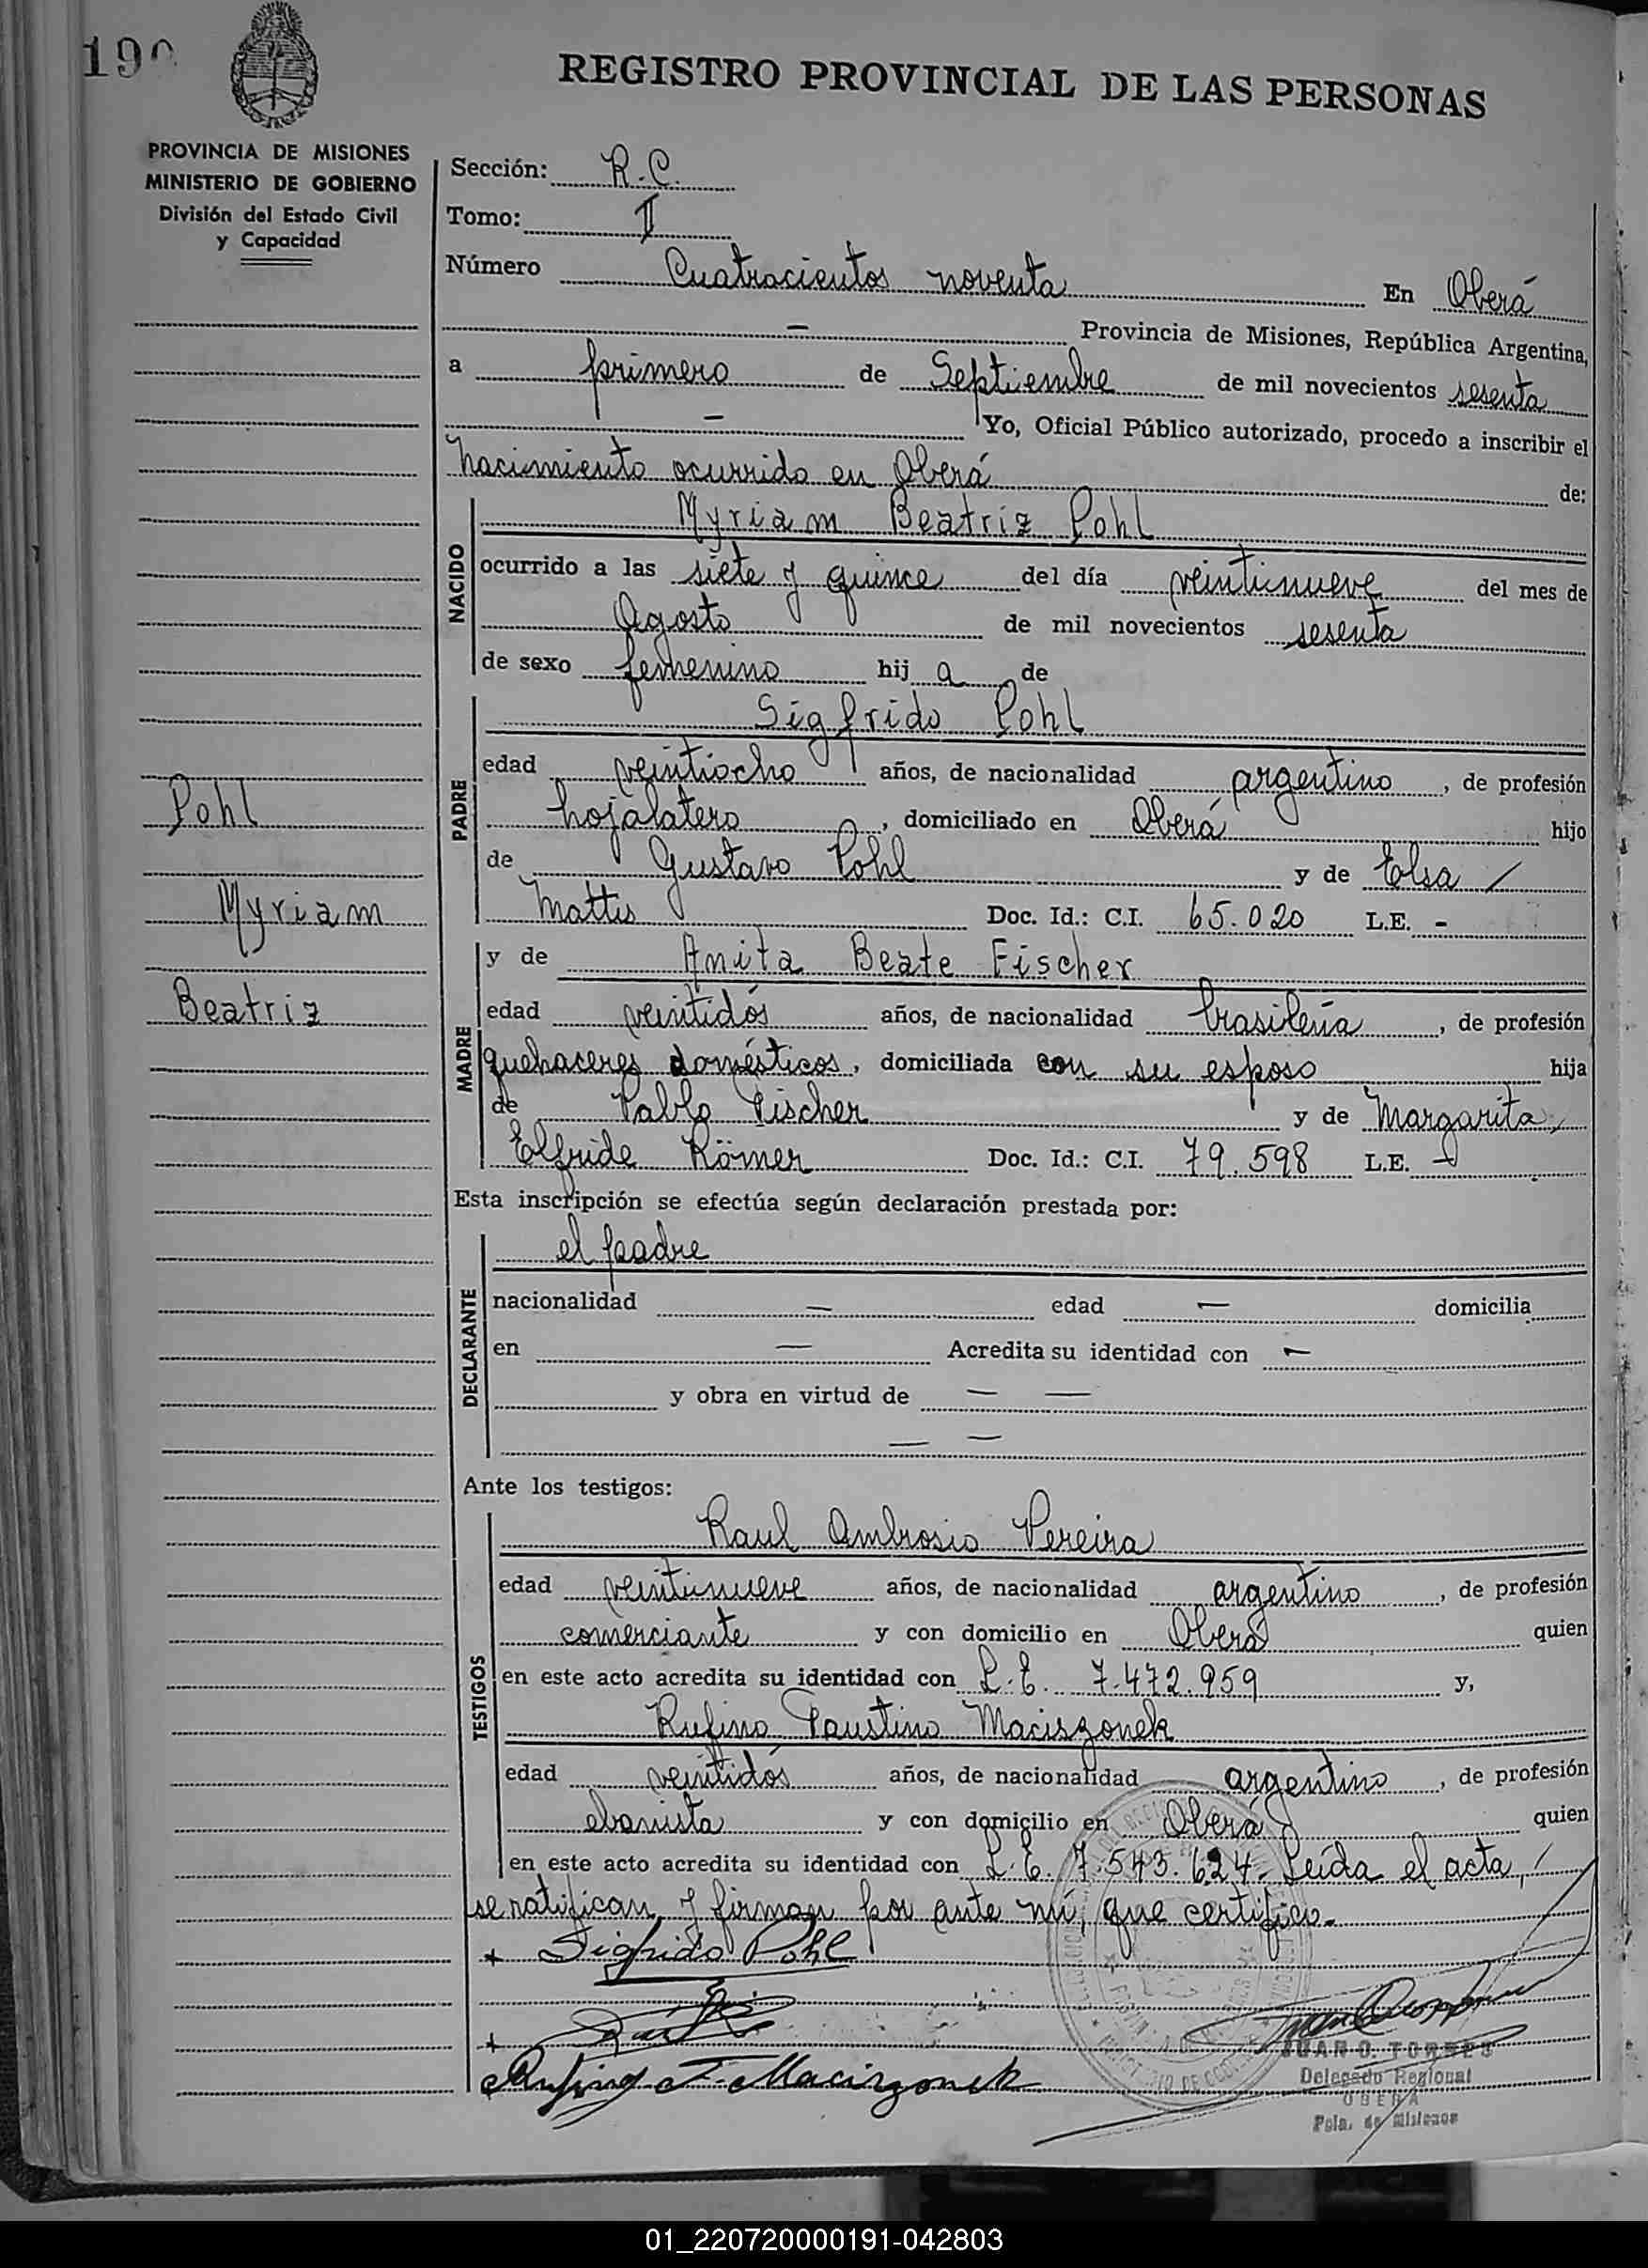 190
REGISTRO PROVINCIAL DE LAS PERSONAS
PROVINCIA DE MISIONES
MINISTERIO DE GOBIERNO
División del Estado Civil
y Capacidad
Sección: R.C.
Tomo: II
Número Cuatrocientos noventa En Oberá
— Provincia de Misiones, República Argentina,
a primero de Septiembre de mil novecientos sesenta
— Yo, Oficial Público autorizado, procedo a inscribir el
nacimiento ocurrido en Oberá de:
NACIDO
Myriam Beatriz Pohl
ocurrido a las siete y quince del día veintinueve del mes de
Agosto de mil novecientos sesenta
de sexo femenino hija de
PADRE
Sigfrido Pohl
edad veintiocho años, de nacionalidad argentino, de profesión
hojalatero, domiciliado en Oberá hijo
de Gustavo Pohl y de Elsa /
Mattis Doc. Id.: C.I. 65.020 L.E. -
Pohl
Myriam
Beatriz
MADRE
y de Anita Beate Fischer
edad veintidós años, de nacionalidad brasileña, de profesión
quehaceres domésticos, domiciliada con su esposo hija
de Pablo Fischer y de Margarita
Elfride Römer Doc. Id.: C.I. 79.598 L.E. -
Esta inscripción se efectúa según declaración prestada por:
DECLARANTE
el padre
nacionalidad — edad — domicilia
en — Acredita su identidad con —
y obra en virtud de — —
— —
Ante los testigos:
TESTIGOS
Raul Ambrosio Pereira
edad veintinueve años, de nacionalidad argentino, de profesión
comerciante y con domicilio en Oberá quien
en este acto acredita su identidad con L.E. 7.472.959 y,
Rufino Faustino Maciszonek
edad veintidós años, de nacionalidad argentino, de profesión
ebanista y con domicilio en Oberá quien
en este acto acredita su identidad con L.E. 7.543.624. Leída el acta, /
se ratifican y firman por ante mí, que certifico.
+ Sigfrido Pohl
+
Rufino F. Maciszonek
JUAN O. TORRES
Delegado Regional
OBERA
Pcia. de Misiones
01_220720000191-042803